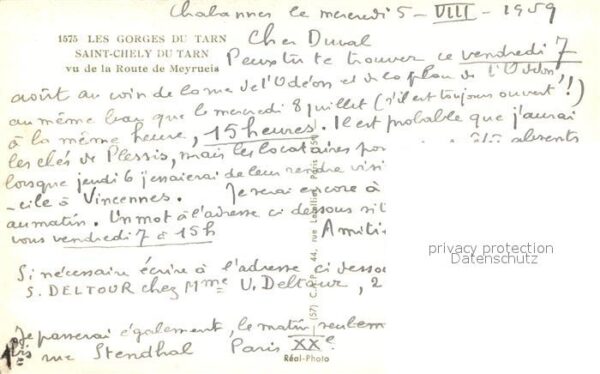 Chabannes le mercredi 5 - VIII - 1959
1575 LES GORGES DU TARN
SAINT-CHELY DU TARN
vu de la Route de Meyrueis
Cher Duval
Peux tu te trouver ce vendredi 7
août au coin de la rue de l'Odéon et de la place de l'Odéon,
au même bar que le mercredi 8 juillet (s'il est toujours ouvert!)
à la même heure, 15 heures. Il est probable que j'aurai
les clés de Plessis, mais les locataires absents
lorsque jeudi 6 j'essaierai de leur rendre visi
Je serai encore à
- cile à Vincennes.
au matin. Un mot à l'adresse ci dessous
vendredi 7 à 15h
Amitié
Si nécessaire écrire à l'adresse ci desso
S. DELTOUR chez Mme V. Deltour, 2
Je passerai également, le matin, seulem
rue Stendhal Paris XXe.
Réal-Photo
privacy protection
Datenschutz